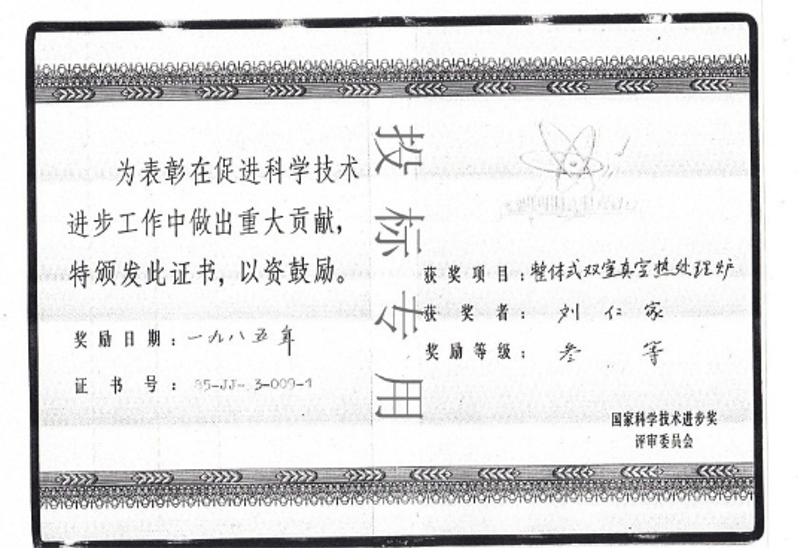 为表彰在促进科学技术
进步工作中做出重大贡献，
特颁发此证书，以资鼓励。
奖励日期：一九八五年
证书号：85-JJ-3-009-1
投标专用
获奖项目：整体式双室真空热处理炉
获奖者：刘仁家
奖励等级：叁等
国家科学技术进步奖
评审委员会